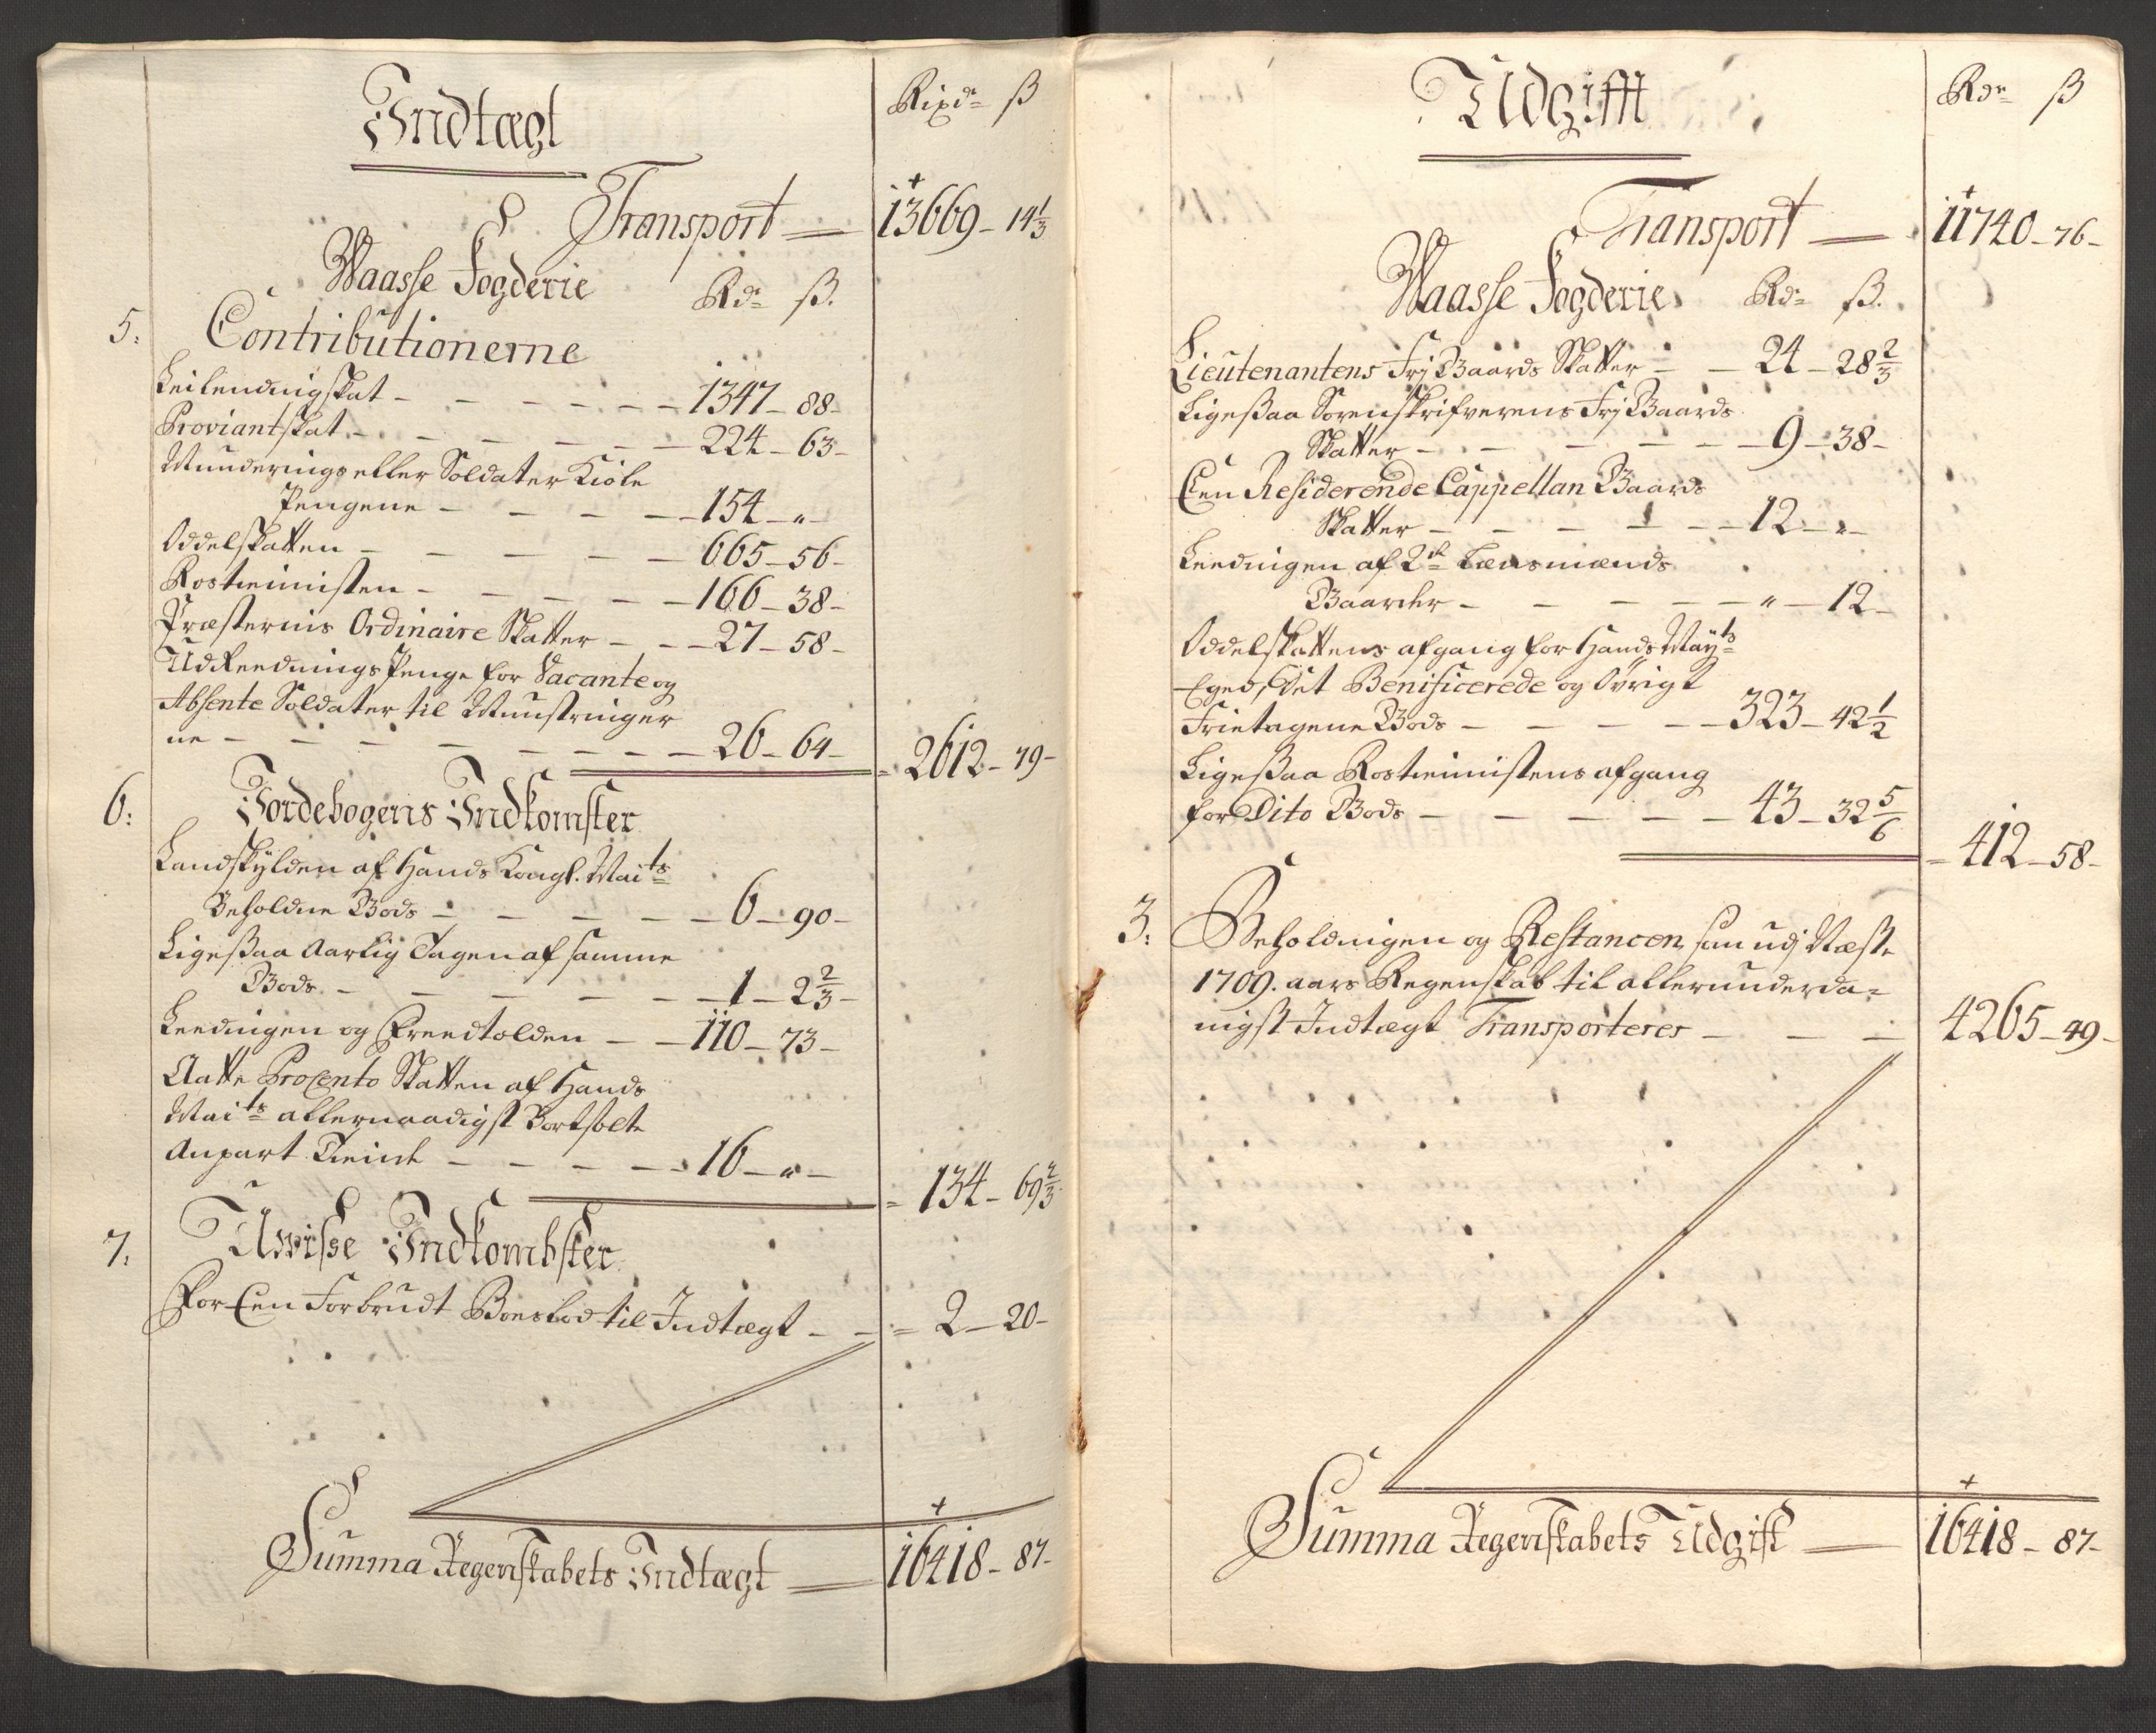 Indtægt
Rixdr ß
Transport 13669 - 14 1/3
Waasse Fogderie Rdr ß.
5. Contributionerne
Leilendingskat - 1347 - 88 -
Proviantskat - 224 - 63 -
Munderings eller Soldater Kiole
Pengene - 154 - " -
Oddelskatten - 665 - 56 -
Rostienisten - 166 - 38 -
Præsternis Ordinaire Skatter - 27 - 58 -
Udreednings Penge for Vacante og
Absente Soldater til Munstringer
ne - 26 - 64 - 2612 - 79 -
6: Jordebogens Indkomster
Landskylden af Hands Kongl. Maits
Beholdne Gods - 6 - 90 -
Ligeßaa Aarlig Tagen af samme
Gods - 1 - 2 2/3 -
Leedingen og Preedtolden - 110 - 73 -
Aatte Procento Skatten af Hands
Maits allernaadigst Bortsolte
Anpart Tiende - 16 - " - 134 - 69 2/3
7. Uwisse Indkombster
For Een Forbrudt Boeslod til Indtægt - 2 - 20 -
Summa Regenskabets Indtægt 16418 - 87 -
Udgifft
Rdr ß
Transport 11740 - 76 -
Waasse Fogderie Rdr ß.
Lieutenantens Frj Gaards Skatter - 24 - 28 2/3
Ligeßaa Sorenskrifverens Frj Gaards
Skatter - 9 - 38 -
Een Residerende Cappellan Gaards
Skatter - 12 - " -
Leedingen af 2de Lænsmænds
Gaarder - " - 12 -
Oddelskattens afgang for Hands Mayts
Eged, det Benificerede og Øvrigt
Frietagene Gods - 323 - 42 1/2
Ligeßaa Rostienistens afgang
for Dito Gods - 43 - 32 5/6
412 - 58 -
3: Beholdningen og Restancen som udj Næste
1709. aars Regenskab til allerunderda=
nigst Indtægt Transporteres - 4265 - 49 -
Summa Regenskabets Udgift 16418 - 87 -